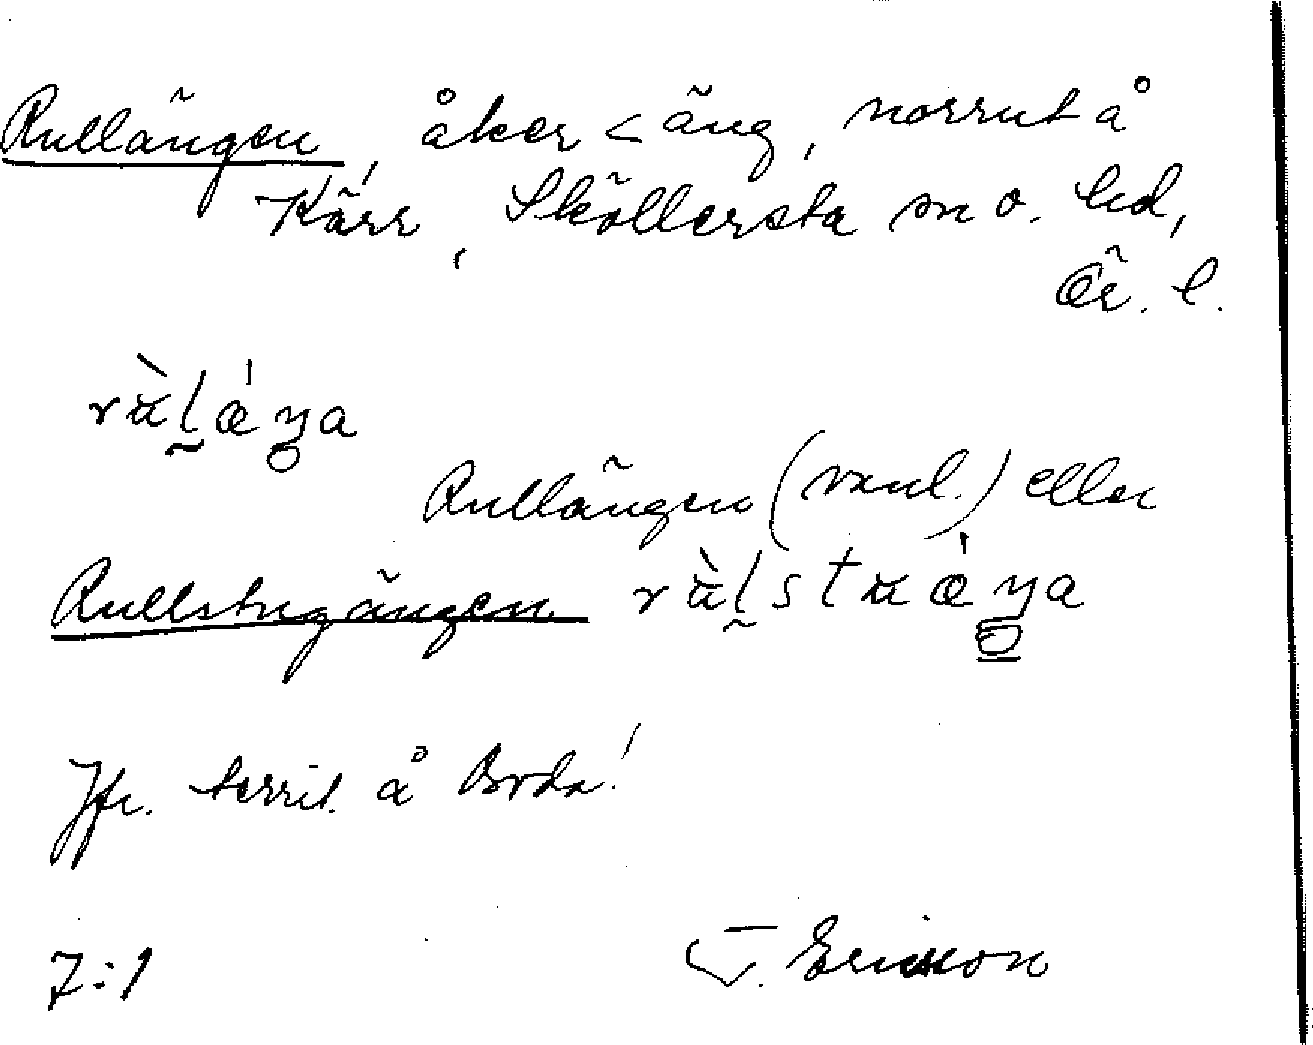 Rullängen, åker < äng, norrut å
Kärr, Sköllersta sn o. hd,
Ör. l.
rùl̰ǽŋa
Rullängen (vanl.) eller
Rullstugängen rùl̰stuǽŋa
Jfr. territ. å Brda!
7:1 J. Ericsson